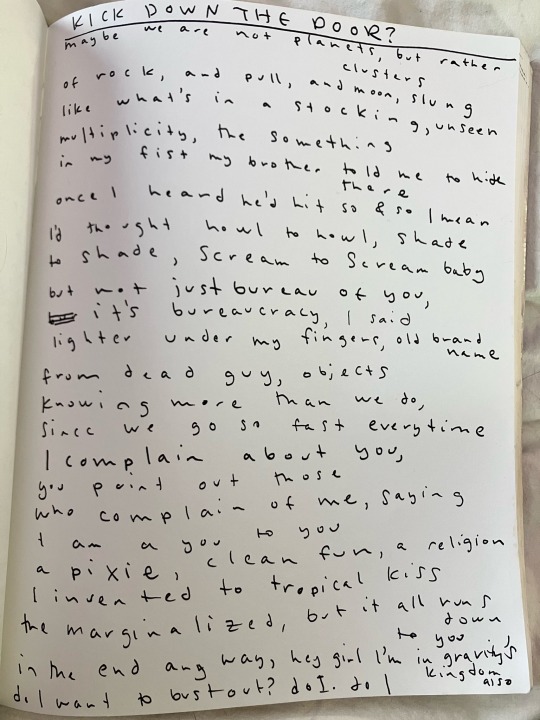 KICK DOWN THE DOOR?
maybe we are not planets, but rather
clusters
of rock, and pull, and moon, slung
like what's in a stocking, unseen
multiplicity, the something
in my fist my brother told me to hide
there
once I heard he'd hit so & so I mean
I'd thought howl to howl, shade
to shade, scream to scream baby
but not just bureau of you,
it's bureaucracy, I said
lighter under my fingers, old brand
name
from dead guy, objects
knowing more than we do,
since we go so fast everytime
I complain about you,
you point out those
who complain of me, saying
I am a you to you
a pixie, clean fun, a religion
I invented to tropical kiss
the marginalized, but it all runs
down
to you,
in the end any way, hey girl I'm in gravity's
kingdom
also
do I want to bust out? do I. do I